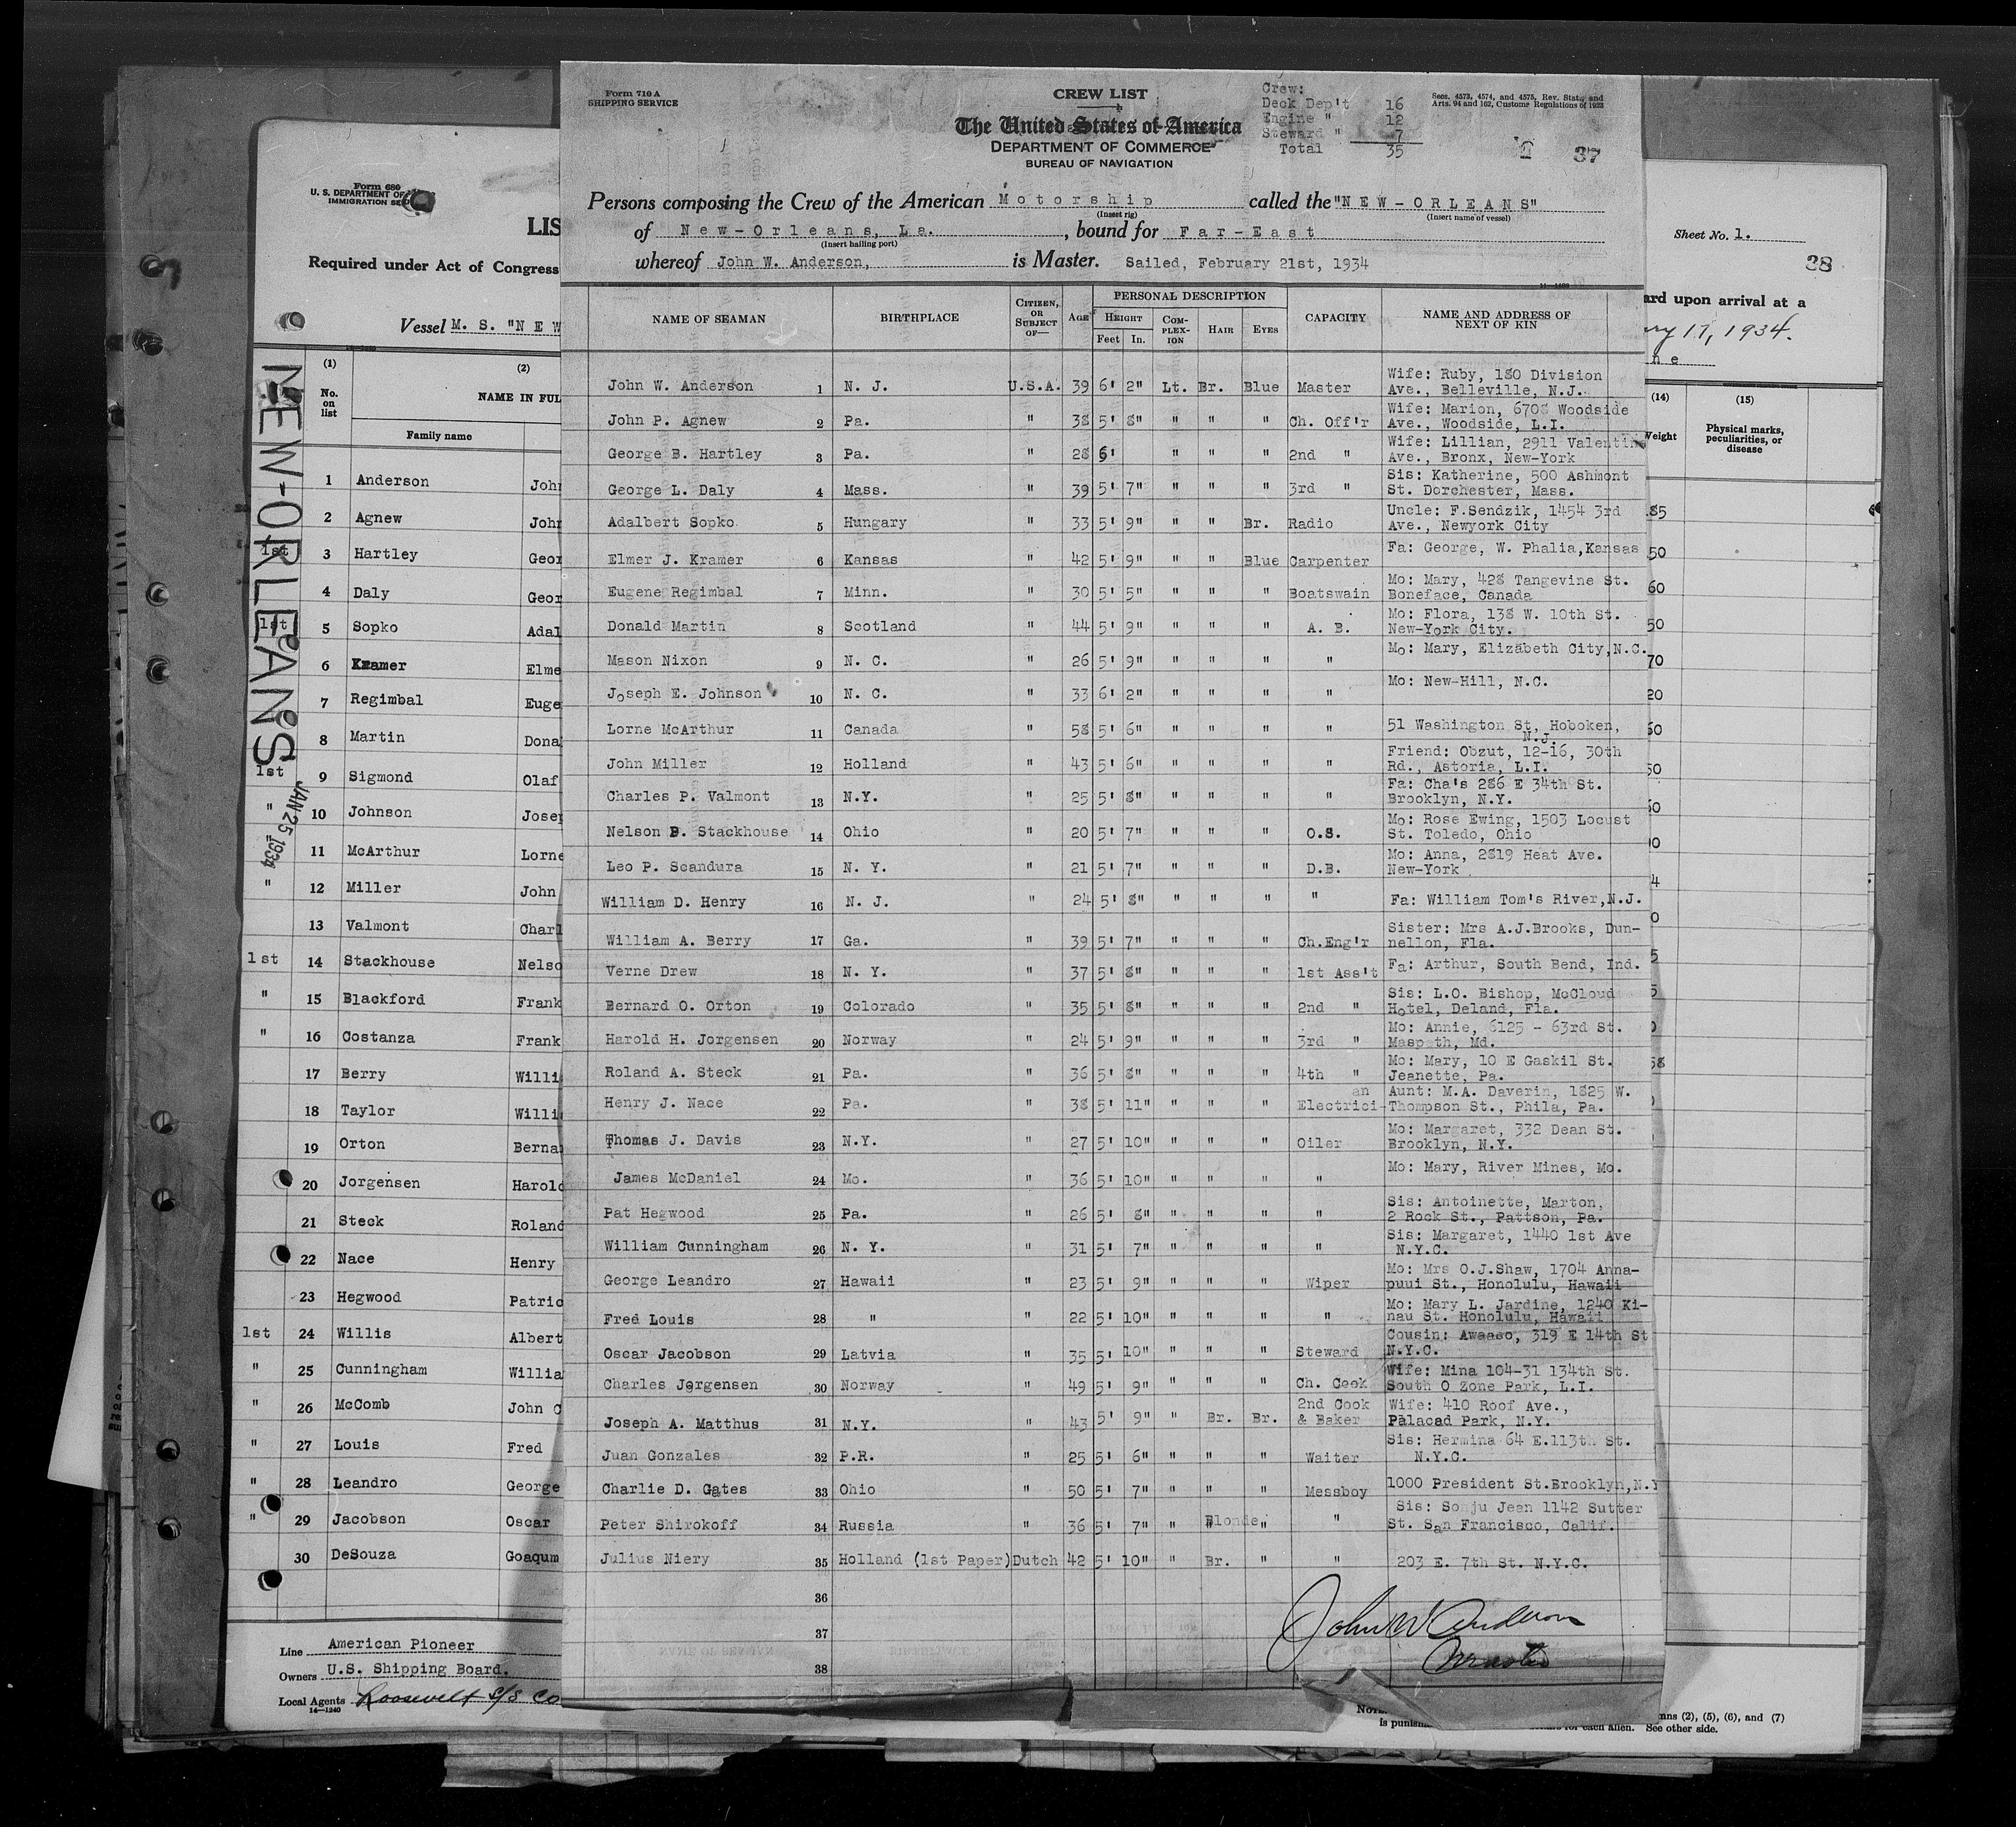 Form 710 A
SHIPPING SERVICE
CREW LIST
The United States of America
DEPARTMENT OF COMMERCE
BUREAU OF NAVIGATION
Crew:
Deck Dep't 16
Engine " 12
Steward " 7
Total 35
Secs. 4573, 4574, and 4575, Rev. Stat., and
Arts. 94 and 162, Customs Regulations of 1923
37
Persons composing the Crew of the American Motorship called the "NEW-ORLEANS"
(Insert rig) (Insert name of vessel)
of New-Orleans, La. , bound for Far-East
(Insert hailing port)
whereof John W. Anderson, is Master. Sailed, February 21st, 1934
NAME OF SEAMAN BIRTHPLACE CITIZEN, OR SUBJECT OF— AGE PERSONAL DESCRIPTION CAPACITY NAME AND ADDRESS OF NEXT OF KIN
HEIGHT COMPLEXION HAIR EYES
Feet In.
John W. Anderson 1 N. J. U.S.A. 39 6' 2" Lt. Br. Blue Master Wife: Ruby, 180 Division
Ave., Belleville, N.J.
John P. Agnew 2 Pa. " 38 5' 8" " " " Ch. Off'r Wife: Marion, 6708 Woodside
Ave., Woodside, L.I.
George B. Hartley 3 Pa. " 28 6' " " " 2nd " Wife: Lillian, 2911 Valentine
Ave., Bronx, New-York
George L. Daly 4 Mass. " 39 5' 7" " " " 3rd " Sis: Katherine, 500 Ashmont
St. Dorchester, Mass.
Adalbert Sopko 5 Hungary " 33 5' 9" " " Br. Radio Uncle: F.Sendzik, 1454 3rd
Ave., Newyork City
Elmer J. Kramer 6 Kansas " 42 5' 9" " " Blue Carpenter Fa: George, W. Phalia,Kansas
Eugene Regimbal 7 Minn. " 30 5' 5" " " " Boatswain Mo: Mary, 428 Tangevine St.
Boneface, Canada
Donald Martin 8 Scotland " 44 5' 9" " " " A. B. Mo: Flora, 138 W. 10th St.
New-York City.
Mason Nixon 9 N. C. " 26 5' 9" " " " " Mo: Mary, Elizabeth City,N.C.
Joseph E. Johnson 10 N. C. " 33 6' 2" " " " " Mo: New-Hill, N.C.
Lorne McArthur 11 Canada " 58 5' 6" " " " " 51 Washington St, Hoboken,
N.J.
John Miller 12 Holland " 43 5' 6" " " " " Friend: Obzut, 12-16, 30th
Rd., Astoria, L.I.
Charles P. Valmont 13 N.Y. " 25 5' 8" " " " " Fa: Cha's 286 E 34th St.
Brooklyn, N.Y.
Nelson B. Stackhouse 14 Ohio " 20 5' 7" " " " O.S. Mo: Rose Ewing, 1503 Locust
St. Toledo, Ohio
Leo P. Scandura 15 N. Y. " 21 5' 7" " " " D.B. Mo: Anna, 2819 Heat Ave.
New-York
William D. Henry 16 N. J. " 24 5' 8" " " " " Fa: William Tom's River,N.J.
William A. Berry 17 Ga. " 39 5' 7" " " " Ch.Eng'r Sister: Mrs A.J.Brooks, Dun-
nellon, Fla.
Verne Drew 18 N. Y. " 37 5' 8" " " " 1st Ass't Fa: Arthur, South Bend, Ind.
Bernard O. Orton 19 Colorado " 35 5' 8" " " " 2nd " Sis: L.O. Bishop, McCloud
Hotel, Deland, Fla.
Harold H. Jorgensen 20 Norway " 24 5' 9" " " " 3rd " Mo: Annie, 6125 - 63rd St.
Maspeth, Md.
Roland A. Steck 21 Pa. " 36 5' 8" " " " 4th " Mo: Mary, 10 E Gaskil St.
Jeanette, Pa.
Henry J. Nace 22 Pa. " 38 5' 11" " " " Electrici-an Aunt: M.A. Daverin, 1825 W.
Thompson St., Phila, Pa.
Thomas J. Davis 23 N.Y. " 27 5' 10" " " " Oiler Mo: Margaret, 332 Dean St.
Brooklyn, N.Y.
James McDaniel 24 Mo. " 36 5' 10" " " " " Mo: Mary, River Mines, Mo.
Pat Hegwood 25 Pa. " 26 5' 8" " " " " Sis: Antoinette, Marton,
2 Rock St., Pattson, Pa.
William Cunningham 26 N. Y. " 31 5' 7" " " " " Sis: Margaret, 1440 1st Ave
N.Y.C.
George Leandro 27 Hawaii " 23 5' 9" " " " Wiper Mo: Mrs O.J.Shaw, 1704 Anna-
puui St., Honolulu, Hawaii
Fred Louis 28 " " 22 5' 10" " " " " Mo: Mary L. Jardine, 1240 Ki-
nau St. Honolulu, Hawaii
Oscar Jacobson 29 Latvia " 35 5' 10" " " " Steward Cousin: Awaaso, 319 E 14th St
N.Y.C.
Charles Jorgensen 30 Norway " 49 5' 9" " " " Ch. Cook Wife: Mina 104-31 134th St.
South O Zone Park, L.I.
Joseph A. Matthus 31 N.Y. " 43 5' 9" " Br. Br. 2nd Cook & Baker Wife: 410 Roof Ave.,
Palacad Park, N.Y.
Juan Gonzales 32 P.R. " 25 5' 6" " " " Waiter Sis: Hermina 64 E.113th St.
N.Y.C.
Charlie D. Gates 33 Ohio " 50 5' 7" " " " Messboy 1000 President St.Brooklyn,N.Y
Peter Shirokoff 34 Russia " 36 5' 7" " Blonde " " Sis: Sonju Jean 1142 Sutter
St. San Francisco, Calif.
Julius Niery 35 Holland (1st Paper) Dutch 42 5' 10" " Br. " " 203 E. 7th St. N.Y.C.
36
37
38
John W Anderson
Master
Form 680
U. S. DEPARTMENT OF
IMMIGRATION SE
LIS
Required under Act of Congress
Vessel M. S. "NEW
(1) (2)
No. on list NAME IN FUL
Family name
NEW-ORLEANS
JAN 25 1934
1 Anderson John
2 Agnew John
1st 3 Hartley Geor
4 Daly Geor
1st 5 Sopko Adal
6 Kramer Elme
7 Regimbal Euge
8 Martin Dona
1st 9 Sigmond Olaf
" 10 Johnson Jose
11 McArthur Lorne
" 12 Miller John
13 Valmont Charl
1st 14 Stackhouse Nelso
" 15 Blackford Frank
" 16 Costanza Frank
17 Berry Willi
18 Taylor Willi
19 Orton Berna
20 Jorgensen Harold
21 Steck Roland
22 Nace Henry
23 Hegwood Patric
1st 24 Willis Albert
" 25 Cunningham Willia
" 26 McComb John C
" 27 Louis Fred
" 28 Leandro George
" 29 Jacobson Oscar
30 DeSouza Goaqum
Line American Pioneer
Owners U.S. Shipping Board.
Local Agents Roosevelt S/S Co
14—1240
Sheet No. 1.
38
ard upon arrival at a
ry 17, 1934.
ne
(14) (15)
Weight Physical marks, peculiarities, or disease
185
50
60
50
70
20
60
50
mns (2), (5), (6), and (7)
is punish
each alien. See other side.